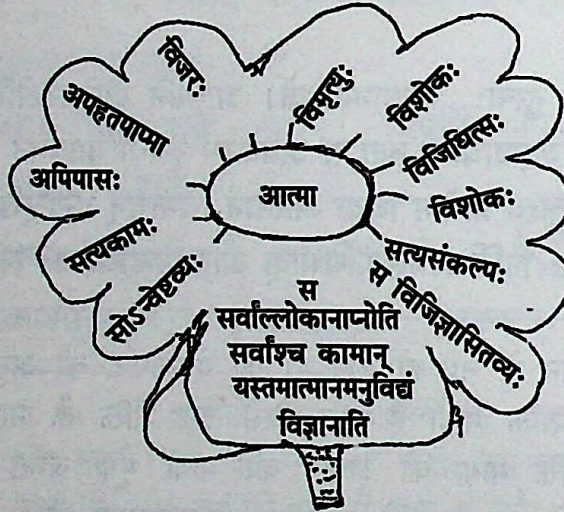 विजरः
अपहतपाप्मा
अपिपासः
सत्यकामः
सोऽन्वेष्टव्यः
विमृत्युः
विशोकः
विजिघित्सः
विशोकः
सत्यसंकल्पः
स विजिज्ञासितव्यः
आत्मा
स
सर्वाल्लोकानाप्नोति
सर्वांश्च कामान्
यस्तमात्मानमनुविद्यं
विज्ञानाति